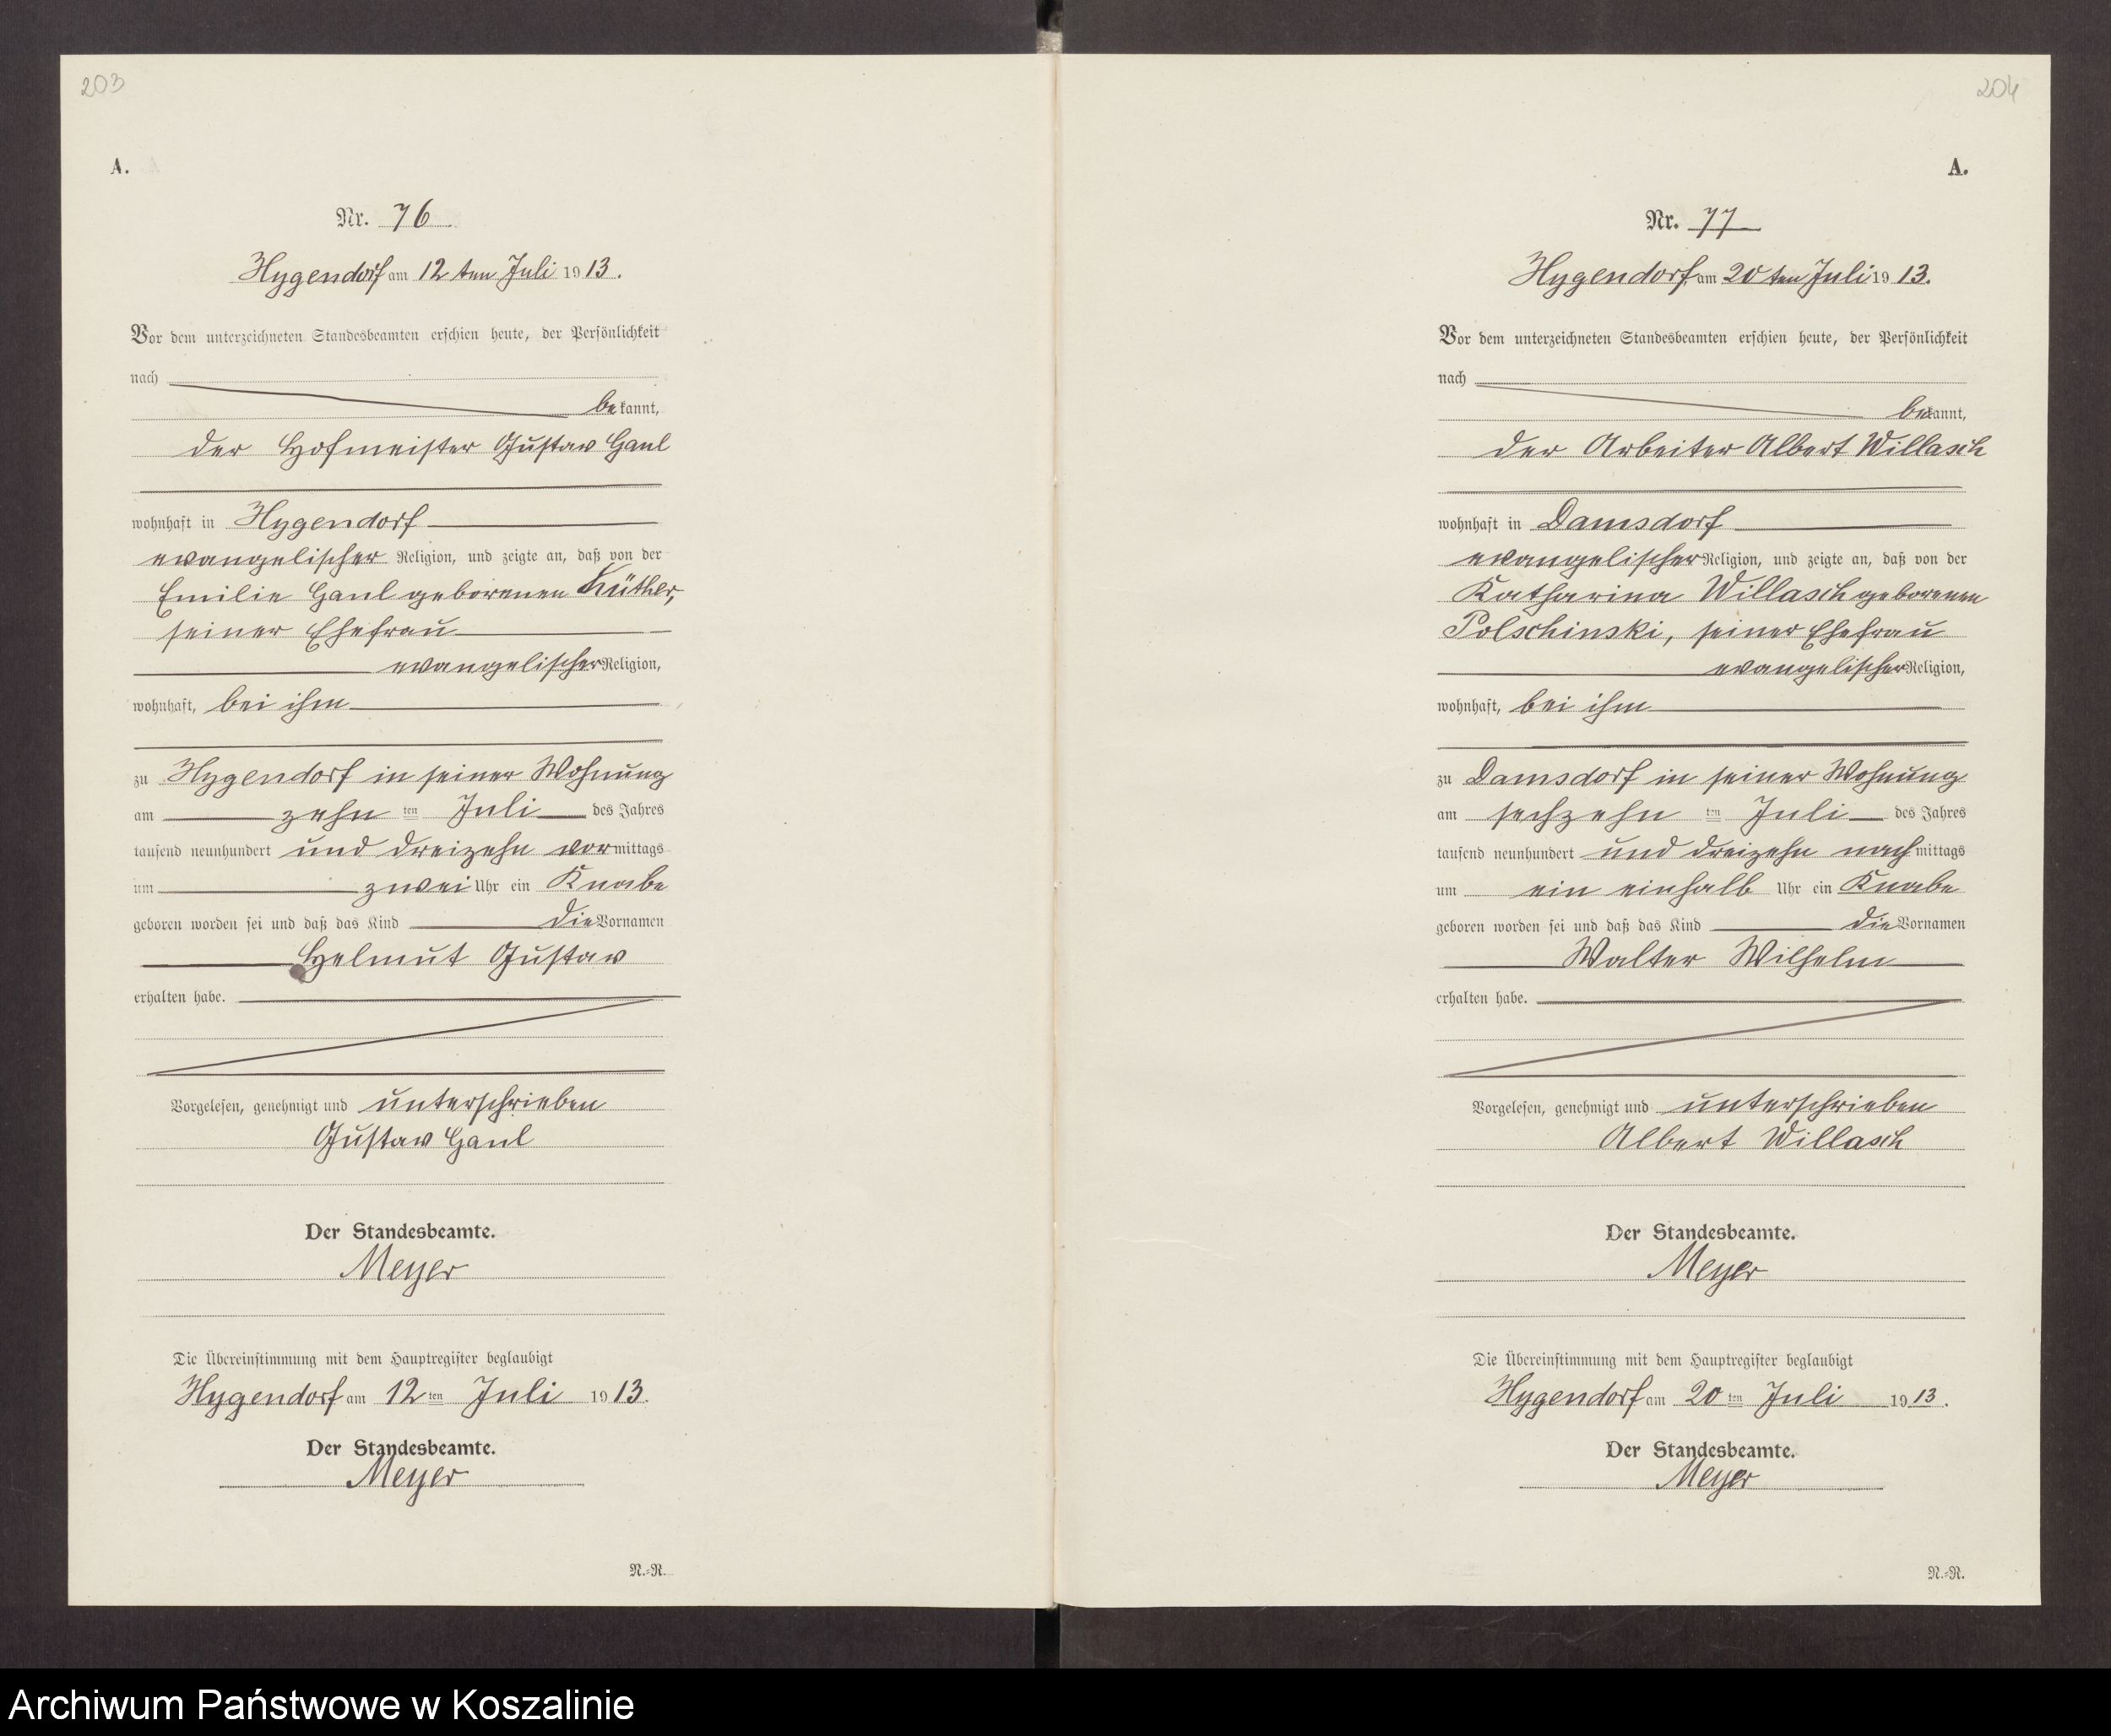 203
A.
Nr. 76
Hygendorf am 12 ten Juli 1913.
Vor dem unterzeichneten Standesbeamten erschien heute, der Persönlichkeit
nach
bekannt,
der Hofmeister Gustav Gaul
wohnhaft in Hygendorf
evangelischer Religion, und zeigte an, daß von der
Emilie Gaul geborenen Küther,
seiner Ehefrau
evangelischer Religion,
wohnhaft, bei ihm
zu Hygendorf in seiner Wohnung
am zehn ten Juli des Jahres
tausend neunhundert und dreizehn vormittags
um zwei Uhr ein Knabe
geboren worden sei und daß das Kind die Vornamen
Helmut Gustav
erhalten habe.
Vorgelesen, genehmigt und unterschrieben
Gustav Gaul
Der Standesbeamte.
Meyer
Die Übereinstimmung mit dem Hauptregister beglaubigt
Hygendorf am 12 ten Juli 1913.
Der Standesbeamte.
Meyer
N.-R.
204
A.
Nr. 77
Hygendorf am 20 ten Juli 1913.
Vor dem unterzeichneten Standesbeamten erschien heute, der Persönlichkeit
nach
bekannt,
der Arbeiter Albert Willasch
wohnhaft in Damsdorf
evangelischer Religion, und zeigte an, daß von der
Katharina Willasch geborenen
Polschinski, seiner Ehefrau
evangelischer Religion,
wohnhaft, bei ihm
zu Damsdorf in seiner Wohnung
am sechzehn ten Juli des Jahres
tausend neunhundert und dreizehn nachmittags
um ein einhalb Uhr ein Knabe
geboren worden sei und daß das Kind die Vornamen
Walter Wilhelm
erhalten habe.
Vorgelesen, genehmigt und unterschrieben
Albert Willasch
Der Standesbeamte.
Meyer
Die Übereinstimmung mit dem Hauptregister beglaubigt
Hygendorf am 20 ten Juli 1913.
Der Standesbeamte.
Meyer
N.-R.
Archiwum Państwowe w Koszalinie